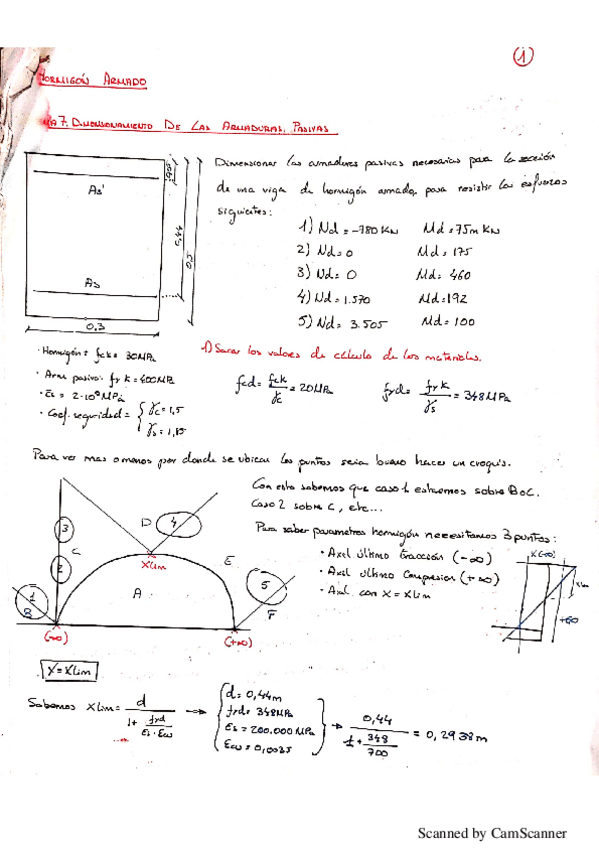 1
HORMIGÓN ARMADO
A7. DIMENSIONAMIENTO DE LAS ARMADURAS PASIVAS
Dimensionar las armaduras pasivas necesarias para la sección
de una viga de hormigón armado, para resistir los esfuerzos
siguientes:
1) Nd = -780 KN Md = 75 m KN
2) Nd = 0 Md = 175
3) Nd = 0 Md = 460
4) Nd = 1.570 Md = 192
5) Nd = 3.505 Md = 100
As'
As
0,06
0,44
0.5
0.3
· Hormigón: fck = 30 MPa
· Acero pasivo: fyk = 400 MPa
· Es = 2·10⁵ MPa
· Coef. seguridad = { γc = 1,5
γs = 1,15
1) Sacar los valores de cálculo de los materiales.
fcd = fck / γc = 20 MPa fyd = fyk / γs = 348 MPa
Para ver mas o menos por donde se ubican los puntos sería bueno hacer un croquis.
Con esto sabemos que caso 1 estaremos sobre B o C.
Caso 2 sobre C, etc...
Para saber parametros hormigón necesitamos 3 puntos:
· Axil último tracción (-∞)
· Axil último Compresion (+∞)
· Axil con X = Xlim
3
2
1
B
C
D
4
Xlim
A
E
5
F
(-∞)
(+∞)
X(-∞)
Xlim
+∞
X = Xlim
Sabemos Xlim = d / (1 + fyd / (Es · Ecu)) → { d = 0,44 m
fyd = 348 MPa
Es = 200.000 MPa
Ecu = 0,0035 } → 0,44 / (1 + 348 / 700) = 0,2938 m
Scanned by CamScanner